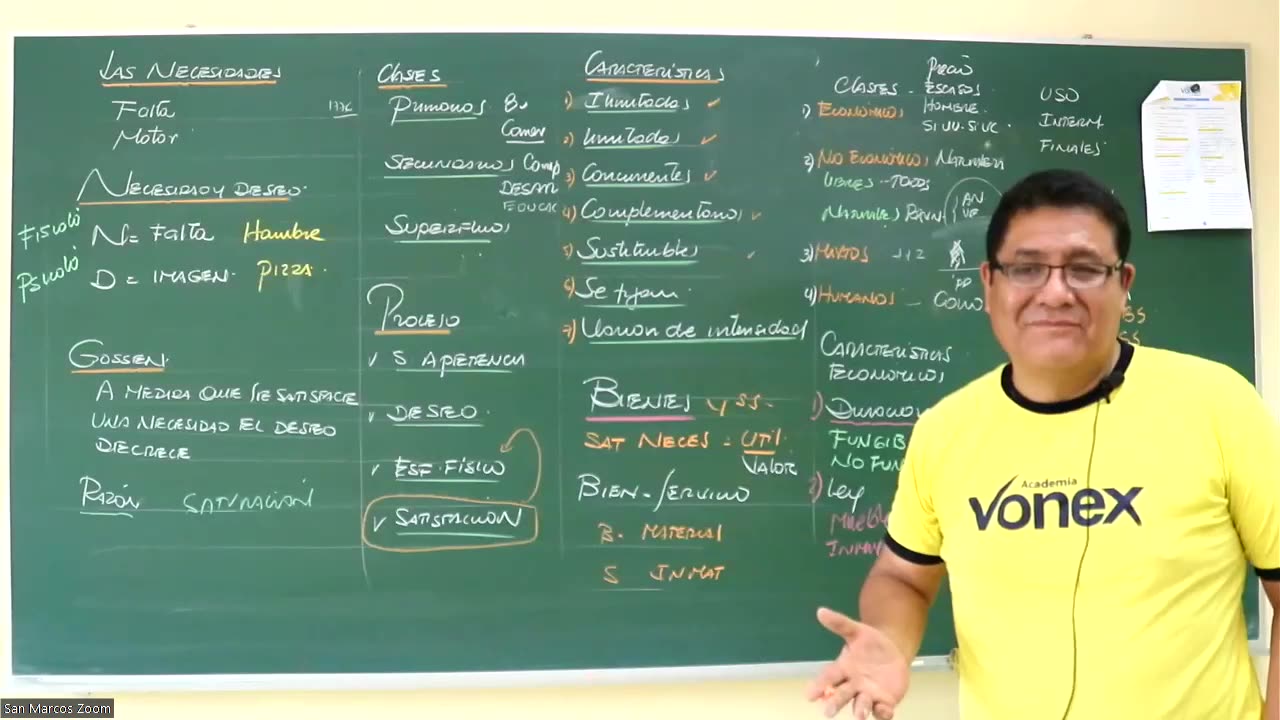 LAS NECESIDADES
Falta
Motor
NECESIDAD Y DESEO.
Fisioló
Psicoló
N = Falta Hambre
D = IMAGEN. PIZZA.
GOSSEN.
A MEDIDA QUE SE SATISFACE
UNA NECESIDAD EL DESEO
DECRECE
RAZÓN SATURACIÓN
CLASES
Primarias B.
Comer
SECUNDARIAS Comp
DESAR
EDUCAC
SUPERFLUAS
PROCESO
✓ S APETENCIA
✓ DESEO.
✓ ESF. FÍSICO
✓ SATISFACCIÓN
CARACTERÍSTICAS
1) Ilimitadas ✓
2) Limitadas ✓
3) Concurrentes ✓
4) Complementarias ✓
5) Sustituibles ✓
6) Se fijan.
7) Varían de intensidad
BIENES y SS.
SAT NECES = UTIL.
VALOR
BIEN - SERVICIO
B. MATERIAL
S INMAT
CLASES -
Precio
ESCASOS
HOMBRE.
1) ECONÓMICOS
2) NO ECONÓMICOS NATURALEZA
LIBRES - TODOS
NATURALES
3) MIXTOS 1+2
4) HUMANOS -
CARACTERÍSTICAS
ECONÓMICOS
1) Duración
FUNGIB
NO FUN
2) Ley
Mueble
INMU
USO
INTERM.
FINALES.
Academia
vonex
San Marcos Zoom